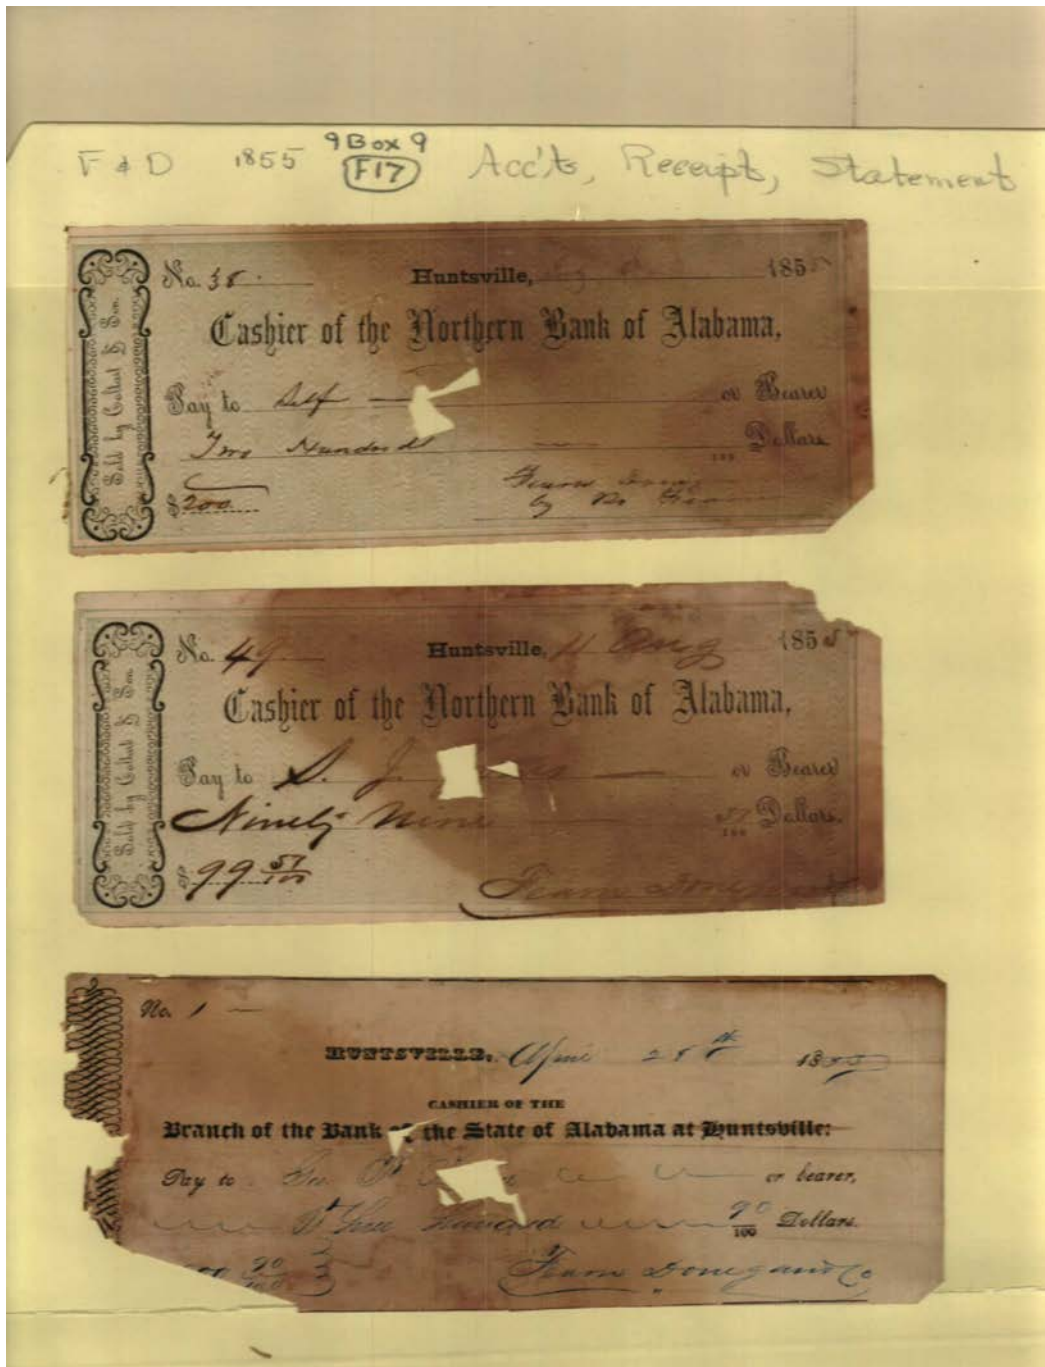 F & D 1855 9 Box 9 Acc'ts, Receipt, Statement
F17
Sold by Coltart & Son.
No. 38. Huntsville, 1855
Cashier of the Northern Bank of Alabama,
Pay to Self or Bearer
Two Hundred Dollars
100
$200
by
Sold by Coltart & Son
No. 49 Huntsville, 11 Aug 1855
Cashier of the Northern Bank of Alabama,
Pay to S. J. or Bearer
Ninety Nine 57/100 Dollars.
$99 57/100
Fearn Donegan
No. 1
HUNTSVILLE, April 28th 18
CASHIER OF THE
Branch of the Bank of the State of Alabama at Huntsville:
Pay to Geo. or bearer,
Hundred 90/100 Dollars.
00 90/100
Fearn Donegan Co